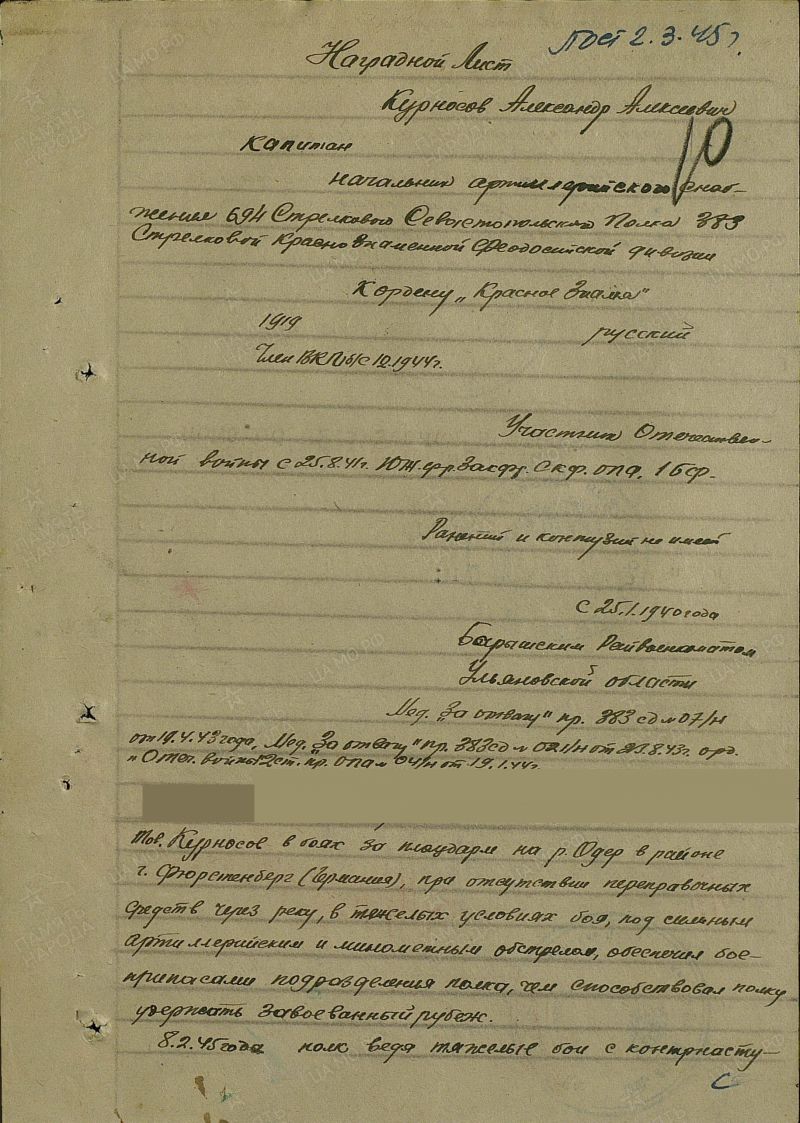 Пост 2.3.45г.
Наградной Лист
Курносов Александр Алексеевич
10
Капитан
начальник артиллерийского снаб-
жения 694 Стрелкового Севастопольского Полка 383
Стрелковой Краснознаменной Феодосийской дивизии
К ордену „Красное Знамя"
1919
русский
Член ВКП(б) с 12.1944г.
Участник Отечествен-
ной войны с 25.8.41г. Юж.фр. Зак.фр. С.К.ф. ОПА, 1БФ.
Ранений и контузий не имеет
С 25.1.1940 года
Барышским Райвоенкоматом
Ульяновской области
Мед. „За отвагу" пр. 383 сд № 07/н
от 19.4.43 года, Мед. „За отвагу" пр. 383сд № 021/н от 25.8.43г. орд.
„Отеч. войны 2ст. пр. ОПА № 04/н от 19.1.44г.
Тов. Курносов в боях за плацдарм на р. Одер в районе
г. Фюрстенберг (Германия), при отсутствии переправочных
средств через реку, в тяжелых условиях боя, под сильным
артиллерийским и минометным обстрелом, обеспечил бое-
припасами подразделения полка, чем способствовал полку
удержать завоеванный рубеж.
8.2.45 года полк ведя тяжелые бои с контрнасту-